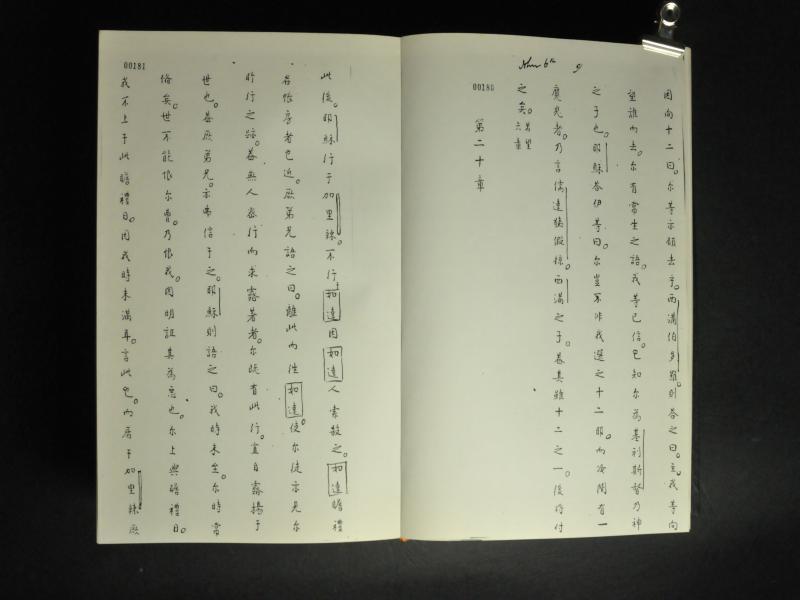 Ann 6th 9
00180
因向十二曰。尔等亦領去乎。西滿伯多羅。則荅之曰。主我等向
望誰而去。尔有常生之語。我等已信。已知尔為基利斯督乃神
之子也。耶穌荅伊等曰。尔豈不非我選之十二耶。而汝間有一
魔鬼者。乃言儒達斯猷掠。西滿之子。蓋其雖十二之一。後将付
之矣。若望六章
第二十章
00181
此後。耶穌行于加里辣。不行于如達因如達人索殺之。如達瞻禮
名悵房者已近。厥弟兄語之曰。離此而往如達。使尔徒亦見尔
所行之跡。蓋無人密行而求露著者。尔既有此行。宜自露揚于
世也。蓋厥弟兄。亦弗信于之。耶穌則語之曰。我時未至。尔時常
俻矣。世不能恨尔曹。乃恨我。因明証其為惡也。尔上與瞻禮日。
我不上于此瞻禮日。因我時未滿耳。言此已。而居于加里辣。厥